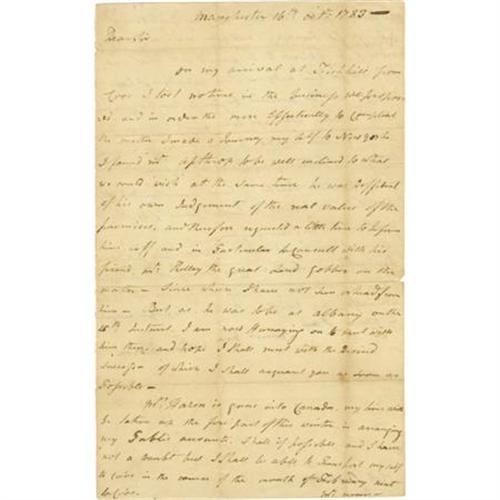 Manchester 16th Octr. 1783 —
Dear Sir
On my arrival at Fishkill from
I lost no time in the business we
and in order the more Effectually to Compleat
the matter I made a Journey my self to New york
I found Mr. Apthrop to be well inclined to what
we could wish at the same time he was Diffident
of his own Judgement of the real value of the
premises, and therefore requested a little time to inform
him self and in Particular to Consult with his
friend Mr. Kelley the great Land Jobber on the
matter — Since when I have not seen or heard from
him — But as he was to be at albany on the
15th Instant. I am now Hurrying on to meet with
him there and hope I shall meet with the Desired
Success — of which I shall acquaint you as soon as
Possible —
Mr. is gone into Canada, my time will
be taken up the fore part of this winter in arranging
my Publick accounts. I shall if possible and I have
not a doubt but I shall be able to Transport my self
to in the course of the month of February next